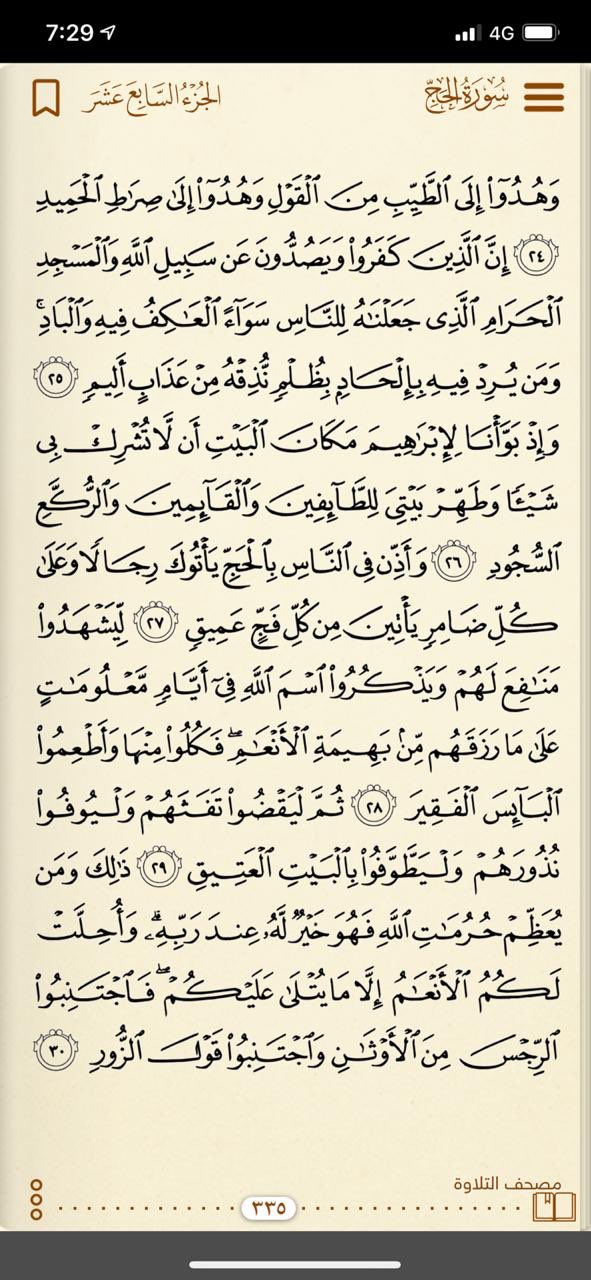 7:29
4G
سُورَةُ الحَجِّ
الجُزْءُ السَّابِعَ عَشَرَ
وَهُدُوٓاْ إِلَى ٱلطَّيِّبِ مِنَ ٱلۡقَوۡلِ وَهُدُوٓاْ إِلَىٰ صِرَٰطِ ٱلۡحَمِيدِ
٢٤ إِنَّ ٱلَّذِينَ كَفَرُواْ وَيَصُدُّونَ عَن سَبِيلِ ٱللَّهِ وَٱلۡمَسۡجِدِ
ٱلۡحَرَامِ ٱلَّذِي جَعَلۡنَٰهُ لِلنَّاسِ سَوَآءً ٱلۡعَٰكِفُ فِيهِ وَٱلۡبَادِۚ
وَمَن يُرِدۡ فِيهِ بِإِلۡحَادِۭ بِظُلۡمٖ نُّذِقۡهُ مِنۡ عَذَابٍ أَلِيمٖ ٢٥
وَإِذۡ بَوَّأۡنَا لِإِبۡرَٰهِيمَ مَكَانَ ٱلۡبَيۡتِ أَن لَّا تُشۡرِكۡ بِي
شَيۡـٔٗا وَطَهِّرۡ بَيۡتِيَ لِلطَّآئِفِينَ وَٱلۡقَآئِمِينَ وَٱلرُّكَّعِ
ٱلسُّجُودِ ٢٦ وَأَذِّن فِي ٱلنَّاسِ بِٱلۡحَجِّ يَأۡتُوكَ رِجَالٗا وَعَلَىٰ
كُلِّ ضَامِرٖ يَأۡتِينَ مِن كُلِّ فَجٍّ عَمِيقٖ ٢٧ لِّيَشۡهَدُواْ
مَنَٰفِعَ لَهُمۡ وَيَذۡكُرُواْ ٱسۡمَ ٱللَّهِ فِيٓ أَيَّامٖ مَّعۡلُومَٰتٍ
عَلَىٰ مَا رَزَقَهُم مِّنۢ بَهِيمَةِ ٱلۡأَنۡعَٰمِۖ فَكُلُواْ مِنۡهَا وَأَطۡعِمُواْ
ٱلۡبَآئِسَ ٱلۡفَقِيرَ ٢٨ ثُمَّ لۡيَقۡضُواْ تَفَثَهُمۡ وَلۡيُوفُواْ
نُذُورَهُمۡ وَلۡيَطَّوَّفُواْ بِٱلۡبَيۡتِ ٱلۡعَتِيقِ ٢٩ ذَٰلِكَۖ وَمَن
يُعَظِّمۡ حُرُمَٰتِ ٱللَّهِ فَهُوَ خَيۡرٞ لَّهُۥ عِندَ رَبِّهِۦۗ وَأُحِلَّتۡ
لَكُمُ ٱلۡأَنۡعَٰمُ إِلَّا مَا يُتۡلَىٰ عَلَيۡكُمۡۖ فَٱجۡتَنِبُواْ
ٱلرِّجۡسَ مِنَ ٱلۡأَوۡثَٰنِ وَٱجۡتَنِبُواْ قَوۡلَ ٱلزُّورِ ٣٠
مصحف التلاوة
٣٣٥